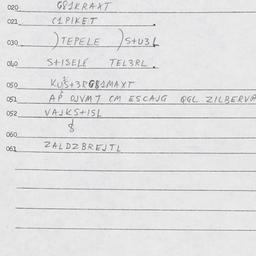 020 G81KRAXT
021 C1PIKET
030 )TEPELE )S+U3L
040 S+ISELE TEL3RL.
050 KUS+3RG81MAXT
051 AP OJVM7 CM ESCAJG QGL ZILBERVA
052 VAJKS+ISL
060 8
061 ZALDZBREJTL